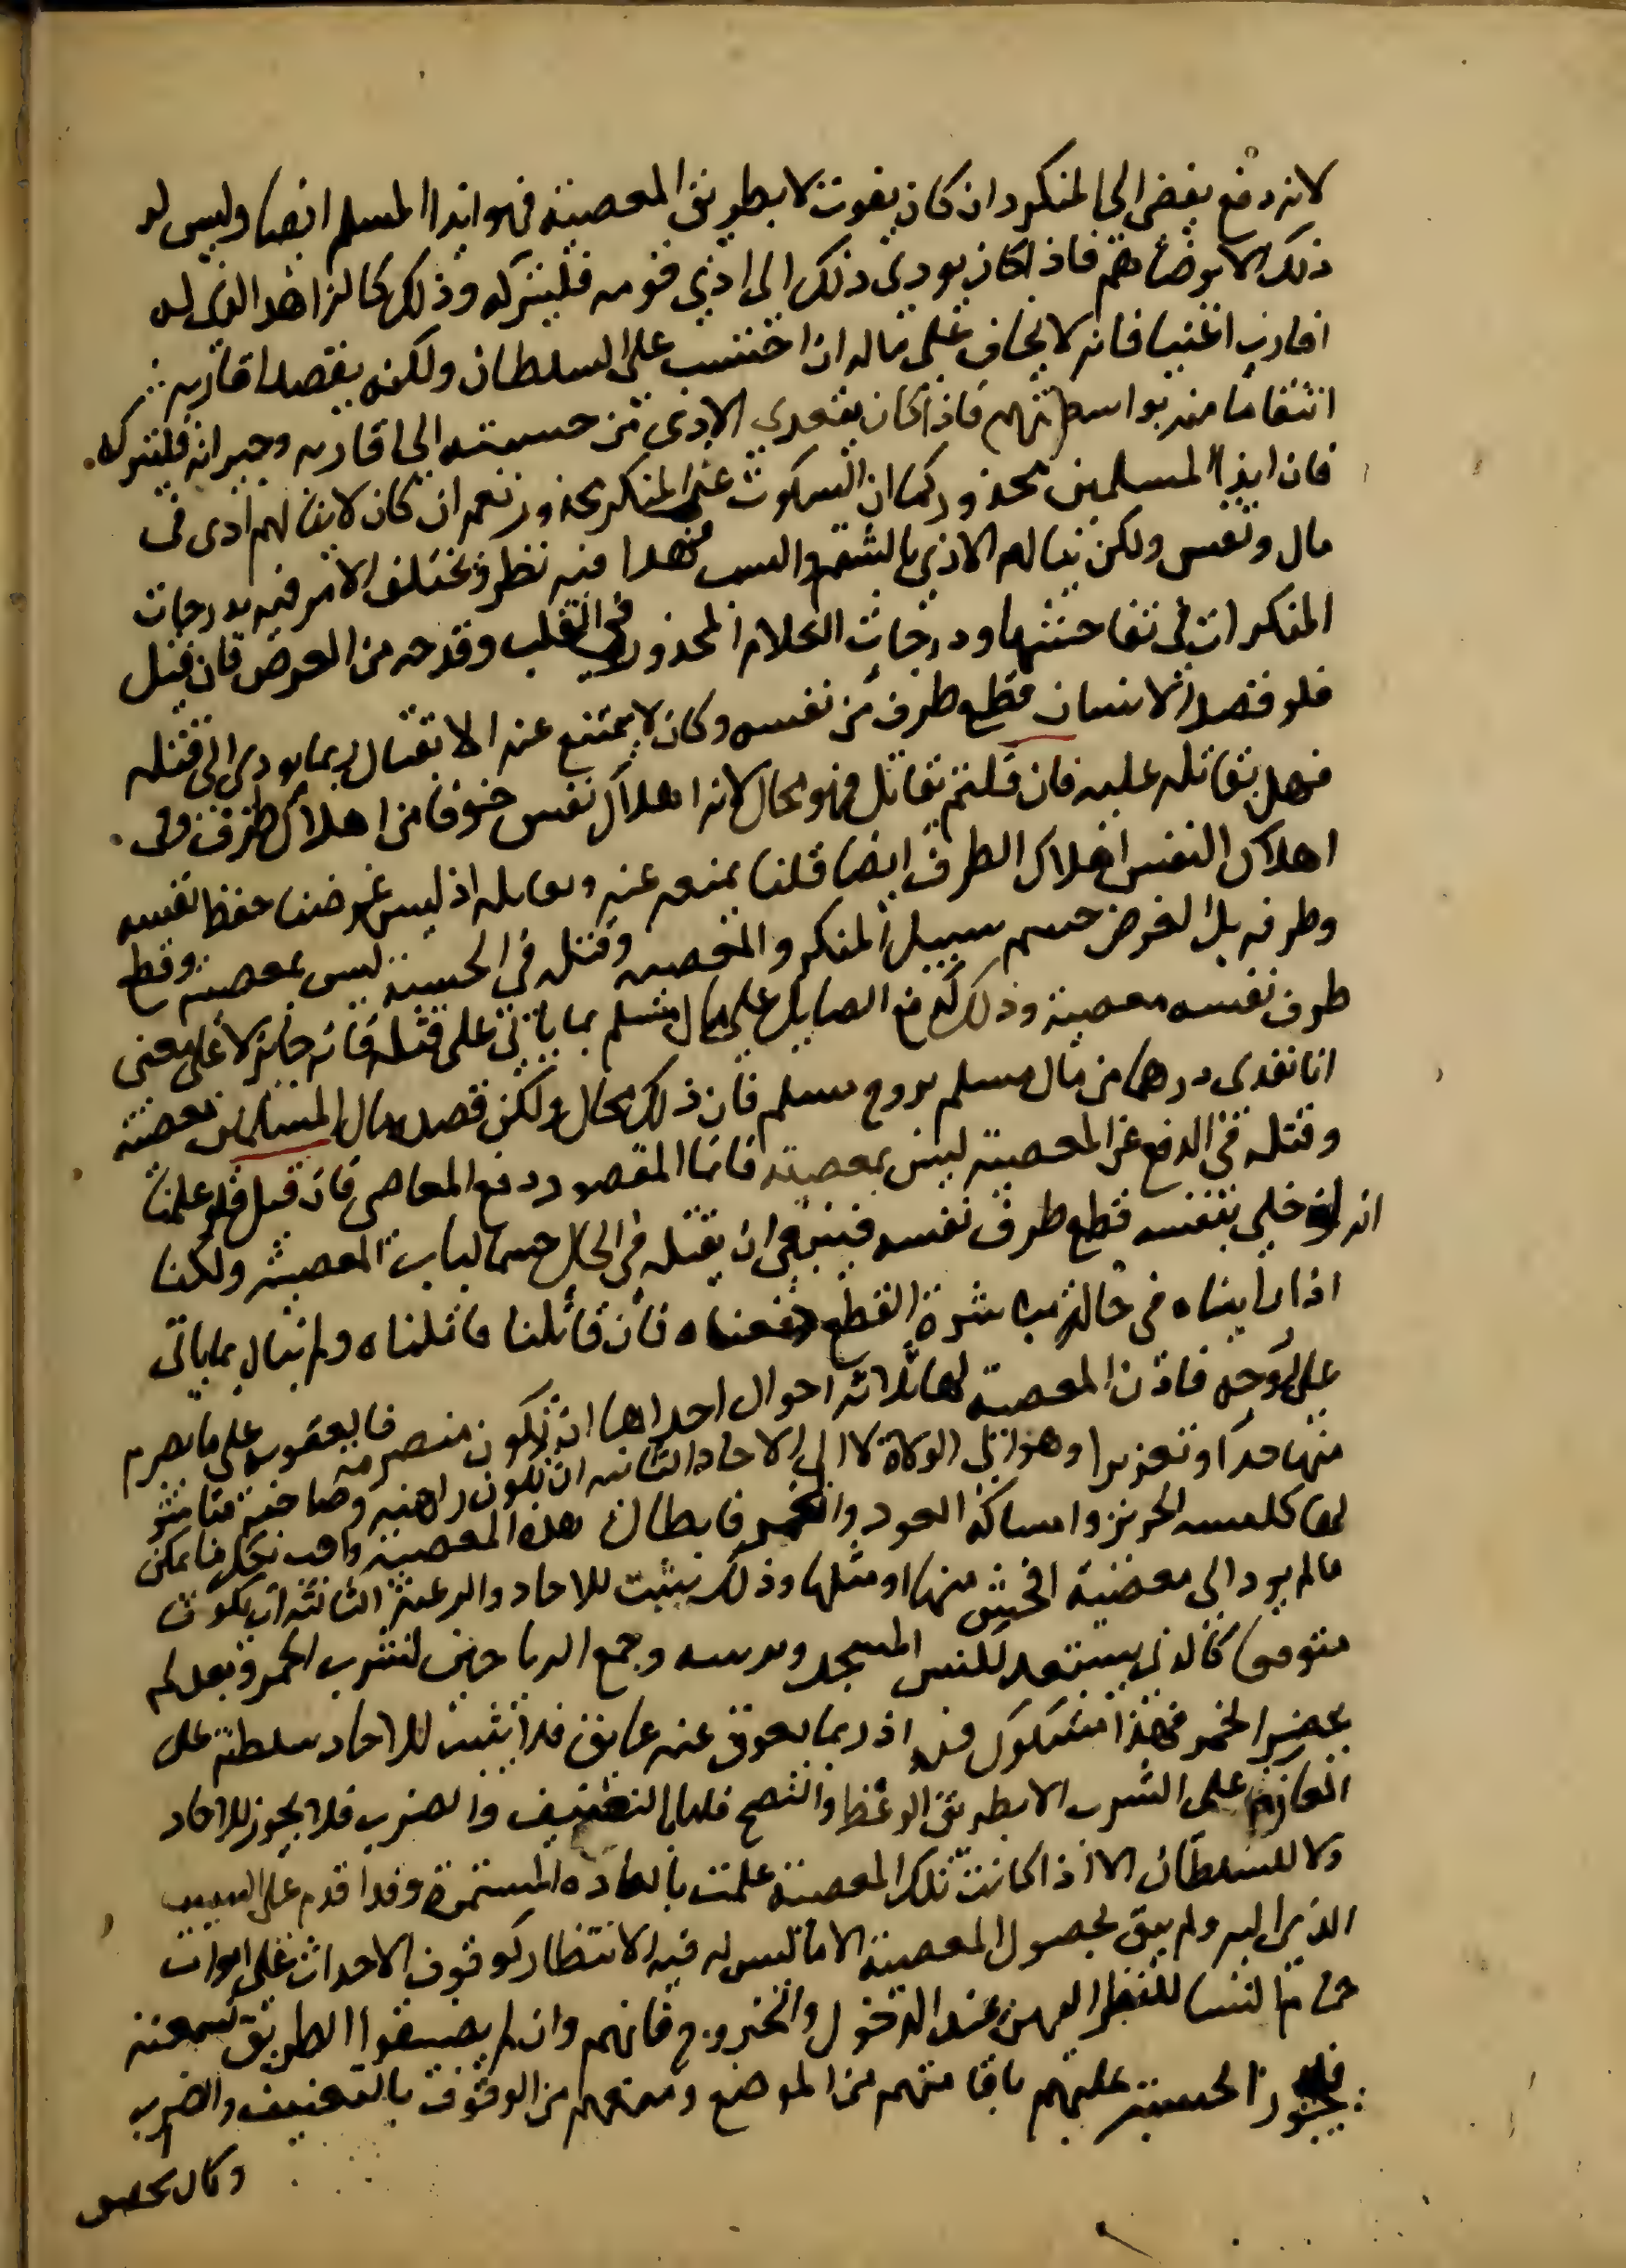 لانه دفع يفضي الى المنكر وان كان يفوت لا بطريق المعصية فهو ايذا المسلم ايضا وليس له
ذلك الا برضاهم فاذا كان يودي ذلك الى اذي قومه فليتركه وذلك كالزاهد الذي له
اقارب اغنيا فانه لا يخاف على ماله ان احتسب على السلطان ولكنه يقصد اقاربه
انتقاما منه بواسطتهم فاذا كان يتعدي الاذي من حسبته الى اقاربه وجيرانه فليتركه
فان ايذا المسلمين محذور كما ان السكوت على المنكر محذور نعم ان كان لا ينالهم اذى في
مال ونفس ولكن ينالهم الاذي بالشتم والسب فهذا فيه نظر ويختلف الامر فيه بدرجات
المنكرات في تفاحشها ودرجات الكلام المحذور في القلب وقدحه من العرض فان قيل
فلو قصد الانسان قطع طرف من نفسه وكان لا يمتنع عنه الا بقتال ربما يودي الى قتله
فهل يقاتله عليه فان قلتم يقاتل فهو محال لانه اهلاك نفس خوفا من اهلاك طرف وفي
اهلاك النفس اهلاك الطرف ايضا قلنا يمنعه عنه ويقاتله اذ ليس غرضنا حفظ نفسه
وطرفه بل الغرض حسم سبيل المنكر والمعصية وقتله في الحسبة ليس بمعصية وقطع
طرف نفسه معصية وذلك كدفع الصايل على مال مسلم بما ياتي على قتله فانه جايز لا على معنى
انا نفدي درهما من مال مسلم بروح مسلم فان ذلك محال ولكن قصده مال المسلمين معصية
وقتله في الدفع عن المعصية ليس بمعصية فانما المقصود دفع المعاصي فان قيل فلو علمنا
انه لو خلي بنفسه قطع طرف نفسه فينبغي ان يقتله في الحال حسما لباب المعصية ولكنا
اذا رايناه في حالة مباشرة القطع دفعناه فان قاتلنا قاتلناه ولم نبال بما ياتي
على روحه فاذن المعصية لها ثلاثة احوال احداها ان تكون منصرمة فالعقوبة على ما تصرم
منها حدا او تعزيرا وهو الى الولاة لا الى الاحاد الثانية ان تكون راهنة وصاحبها مباشر
لها كلبسه الحرير وامساكه العود والخمر فابطال هذه المعصية واجب بكل ما يمكن
ما لم يود الى معصية افحش منها او مثلها وذلك يثبت للاحاد والرعية الثالثة ان يكون
متوقعا كالذي يستعد لكنس المسجد وبدريسه وجمع الرياحين لشرب الخمر وبعد لم
يحضر الخمر فهذا مشكوك فيه اذ ربما يعوق عنه عايق فلا يثبت للاحاد سلطنة على
العازم على الشرب الا بطريق الوعظ والنصح فاما التعنيف والضرب فلا يجوز للاحاد
ولا للسلطان الا اذا كانت تلك المعصية علمت بالعادة المستمرة وقد اقدم على السبب
الذي اليه ولم يبق لحصول المعصية الا ما ليس له فيه الا نتظار كوقوف الاحداث على ابواب
حمامات النسا للنظر اليهن عند الدخول والخروج فانهم وان لم يضيقوا الطريق لسعته
فيجوز الحسبة عليهم باقامتهم من الموضع ومنعهم من الوقوف بالتعنيف والضرب
وكان تحصيل